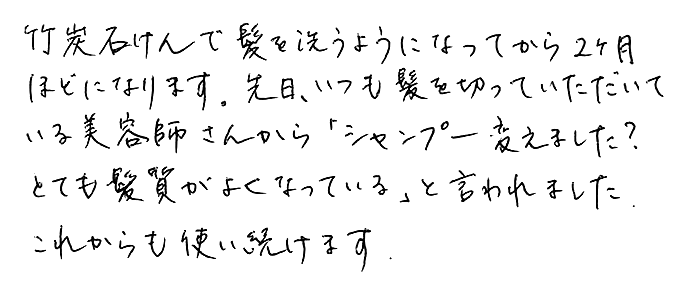 竹炭石けんで髪を洗うようになってから2ケ月
ほどになります。先日、いつも髪を切っていただいて
いる美容師さんから「シャンプー変えました?
とても髪質がよくなっている」と言われました.
これからも使い続けます.